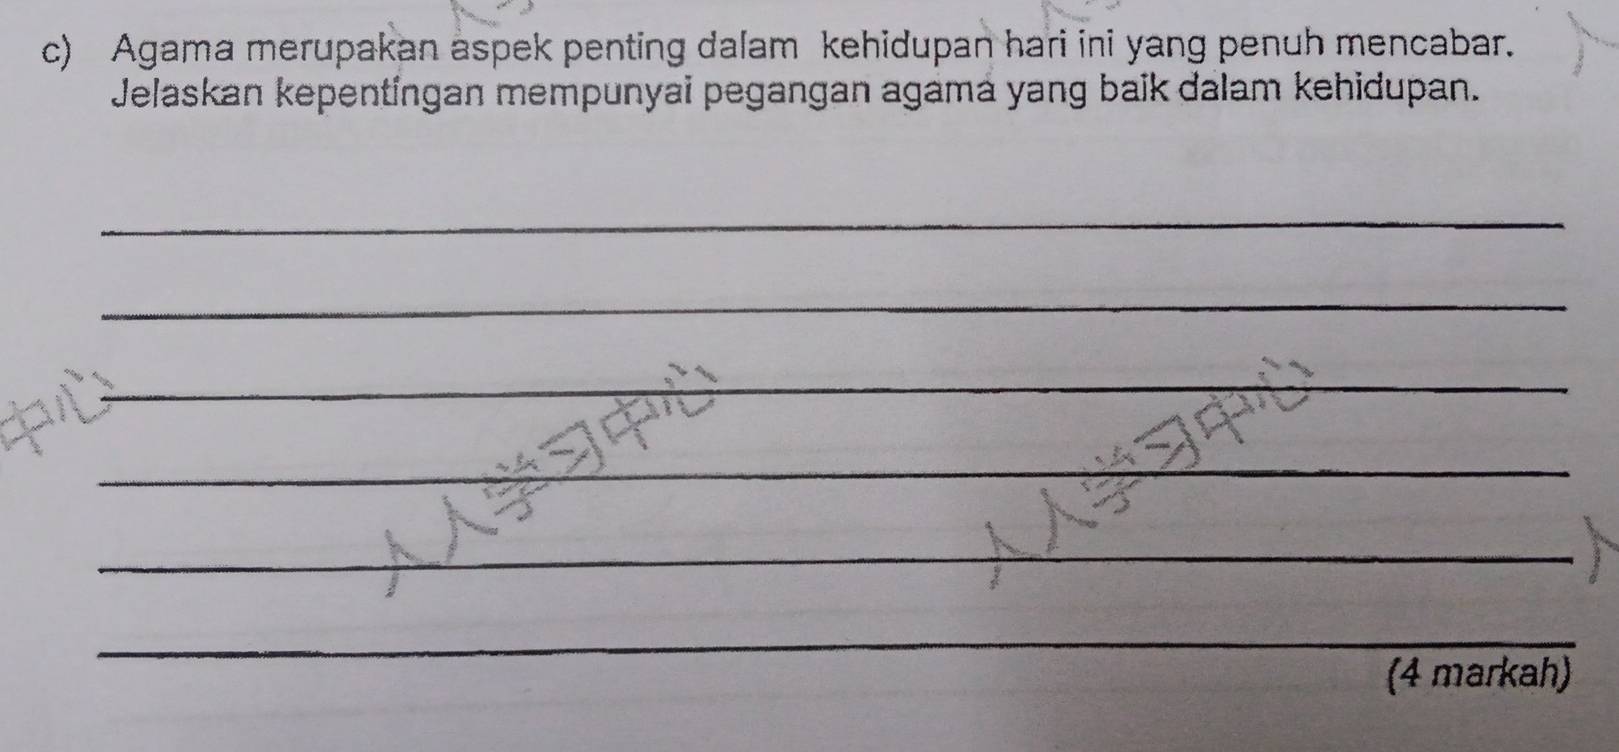 c) Agama merupakan aspek penting dalam kehidupan hari ini yang penuh mencabar.
Jelaskan kepentingan mempunyai pegangan agama yang baik dalam kehidupan.
中心
人人学习中心
人人学习中心
人
(4 markah)